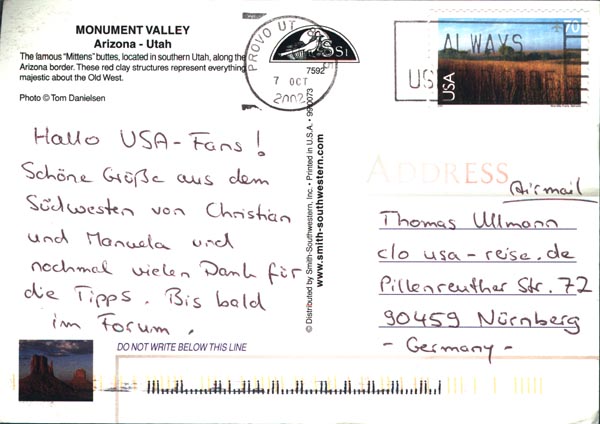 MONUMENT VALLEY
Arizona - Utah
The famous "Mittens" buttes, located in southern Utah, along the
Arizona border. These red clay structures represent everything
majestic about the Old West.
Photo © Tom Danielsen
Hallo USA-Fans!
Schöne Grüße aus dem
Südwesten von Christian
und Manuela und
nochmal vielen Dank für
die Tipps. Bis bald
im Forum.
DO NOT WRITE BELOW THIS LINE
PROVO UT
7 OCT
2002
7592
© Distributed by Smith-Southwestern, Inc. • Printed in U.S.A. • 990073
www.smith-southwestern.com
ALWAYS
US
70
USA
ADDRESS
Airmail
Thomas Ullmann
c/o usa-reise.de
Pillenreuther Str. 72
90459 Nürnberg
- Germany -